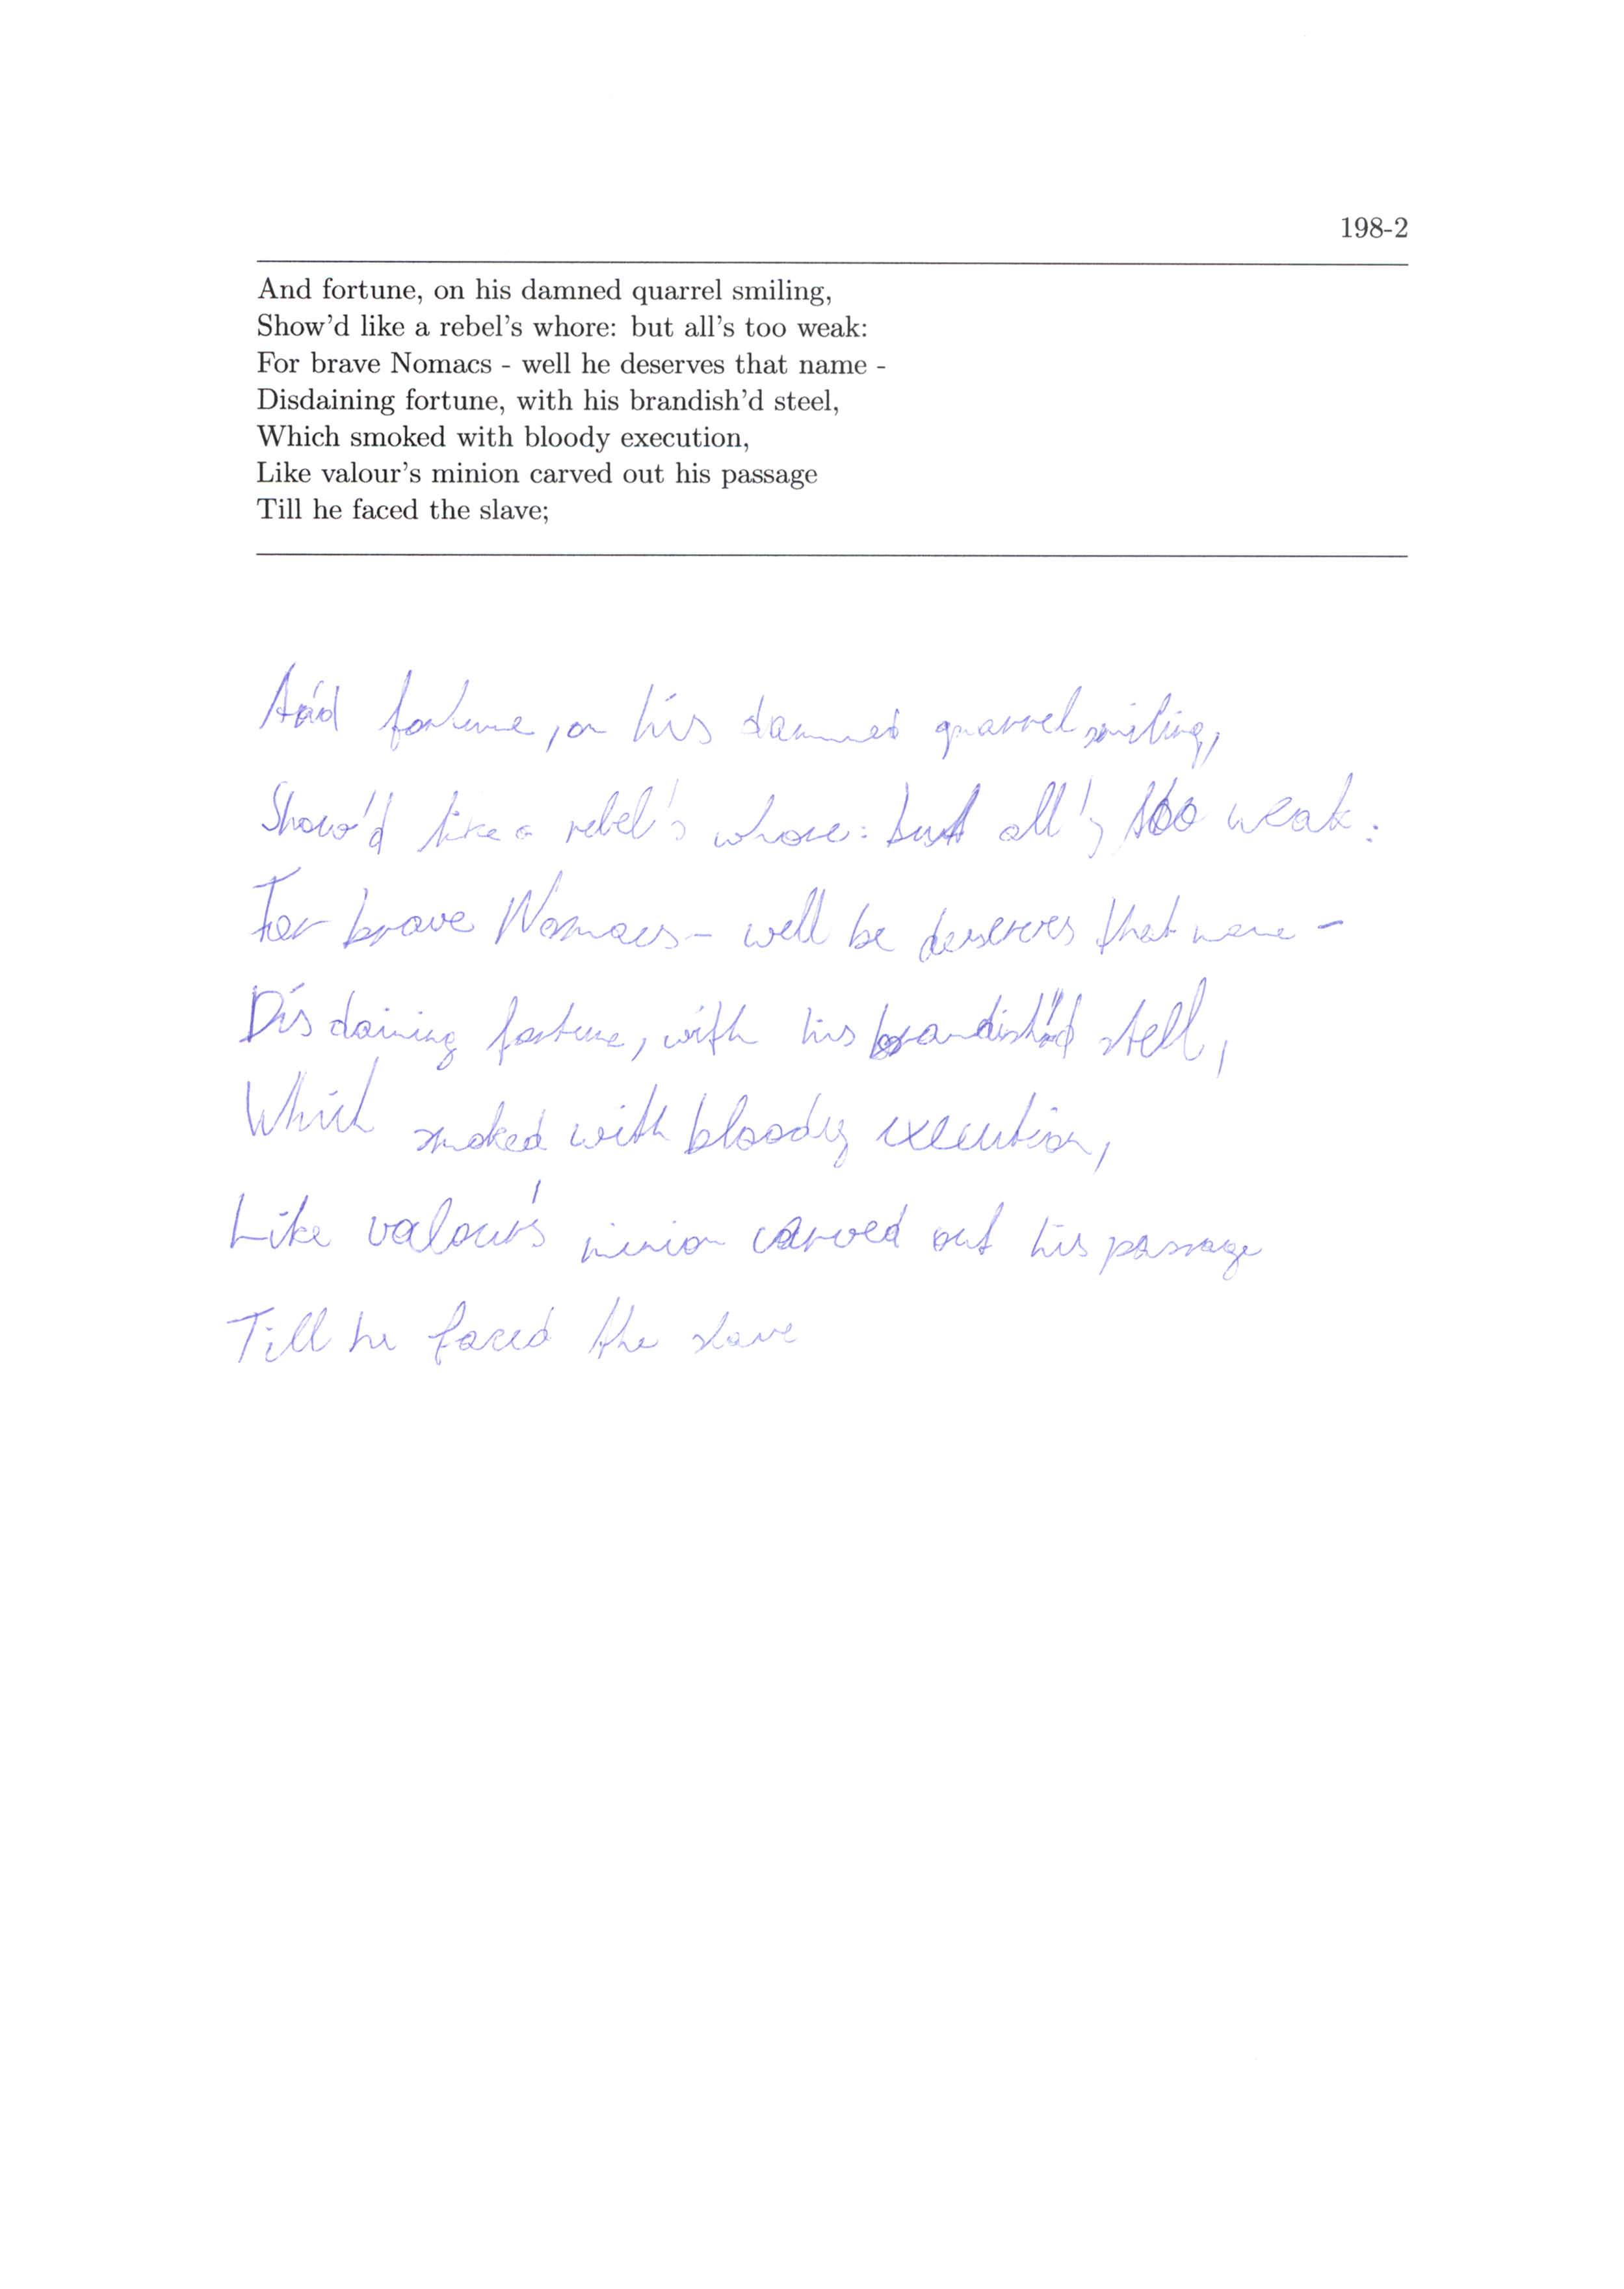 198-2
And fortune, on his damned quarrel smiling,
Show'd like a rebel's whore: but all's too weak:
For brave Nomacs - well he deserves that name -
Disdaining fortune, with his brandish'd steel,
Which smoked with bloody execution,
Like valour's minion carved out his passage
Till he faced the slave;
And fortune, on his damned quarrel smiling,
Show'd like a rebel's whore: but all's too weak:
For brave Nomacs - well be deserves that name -
Disdaining fortune, with his brandish'd stell,
Which smoked with bloody execution,
Like valour's minion carved out his passage
Till he faced the slave